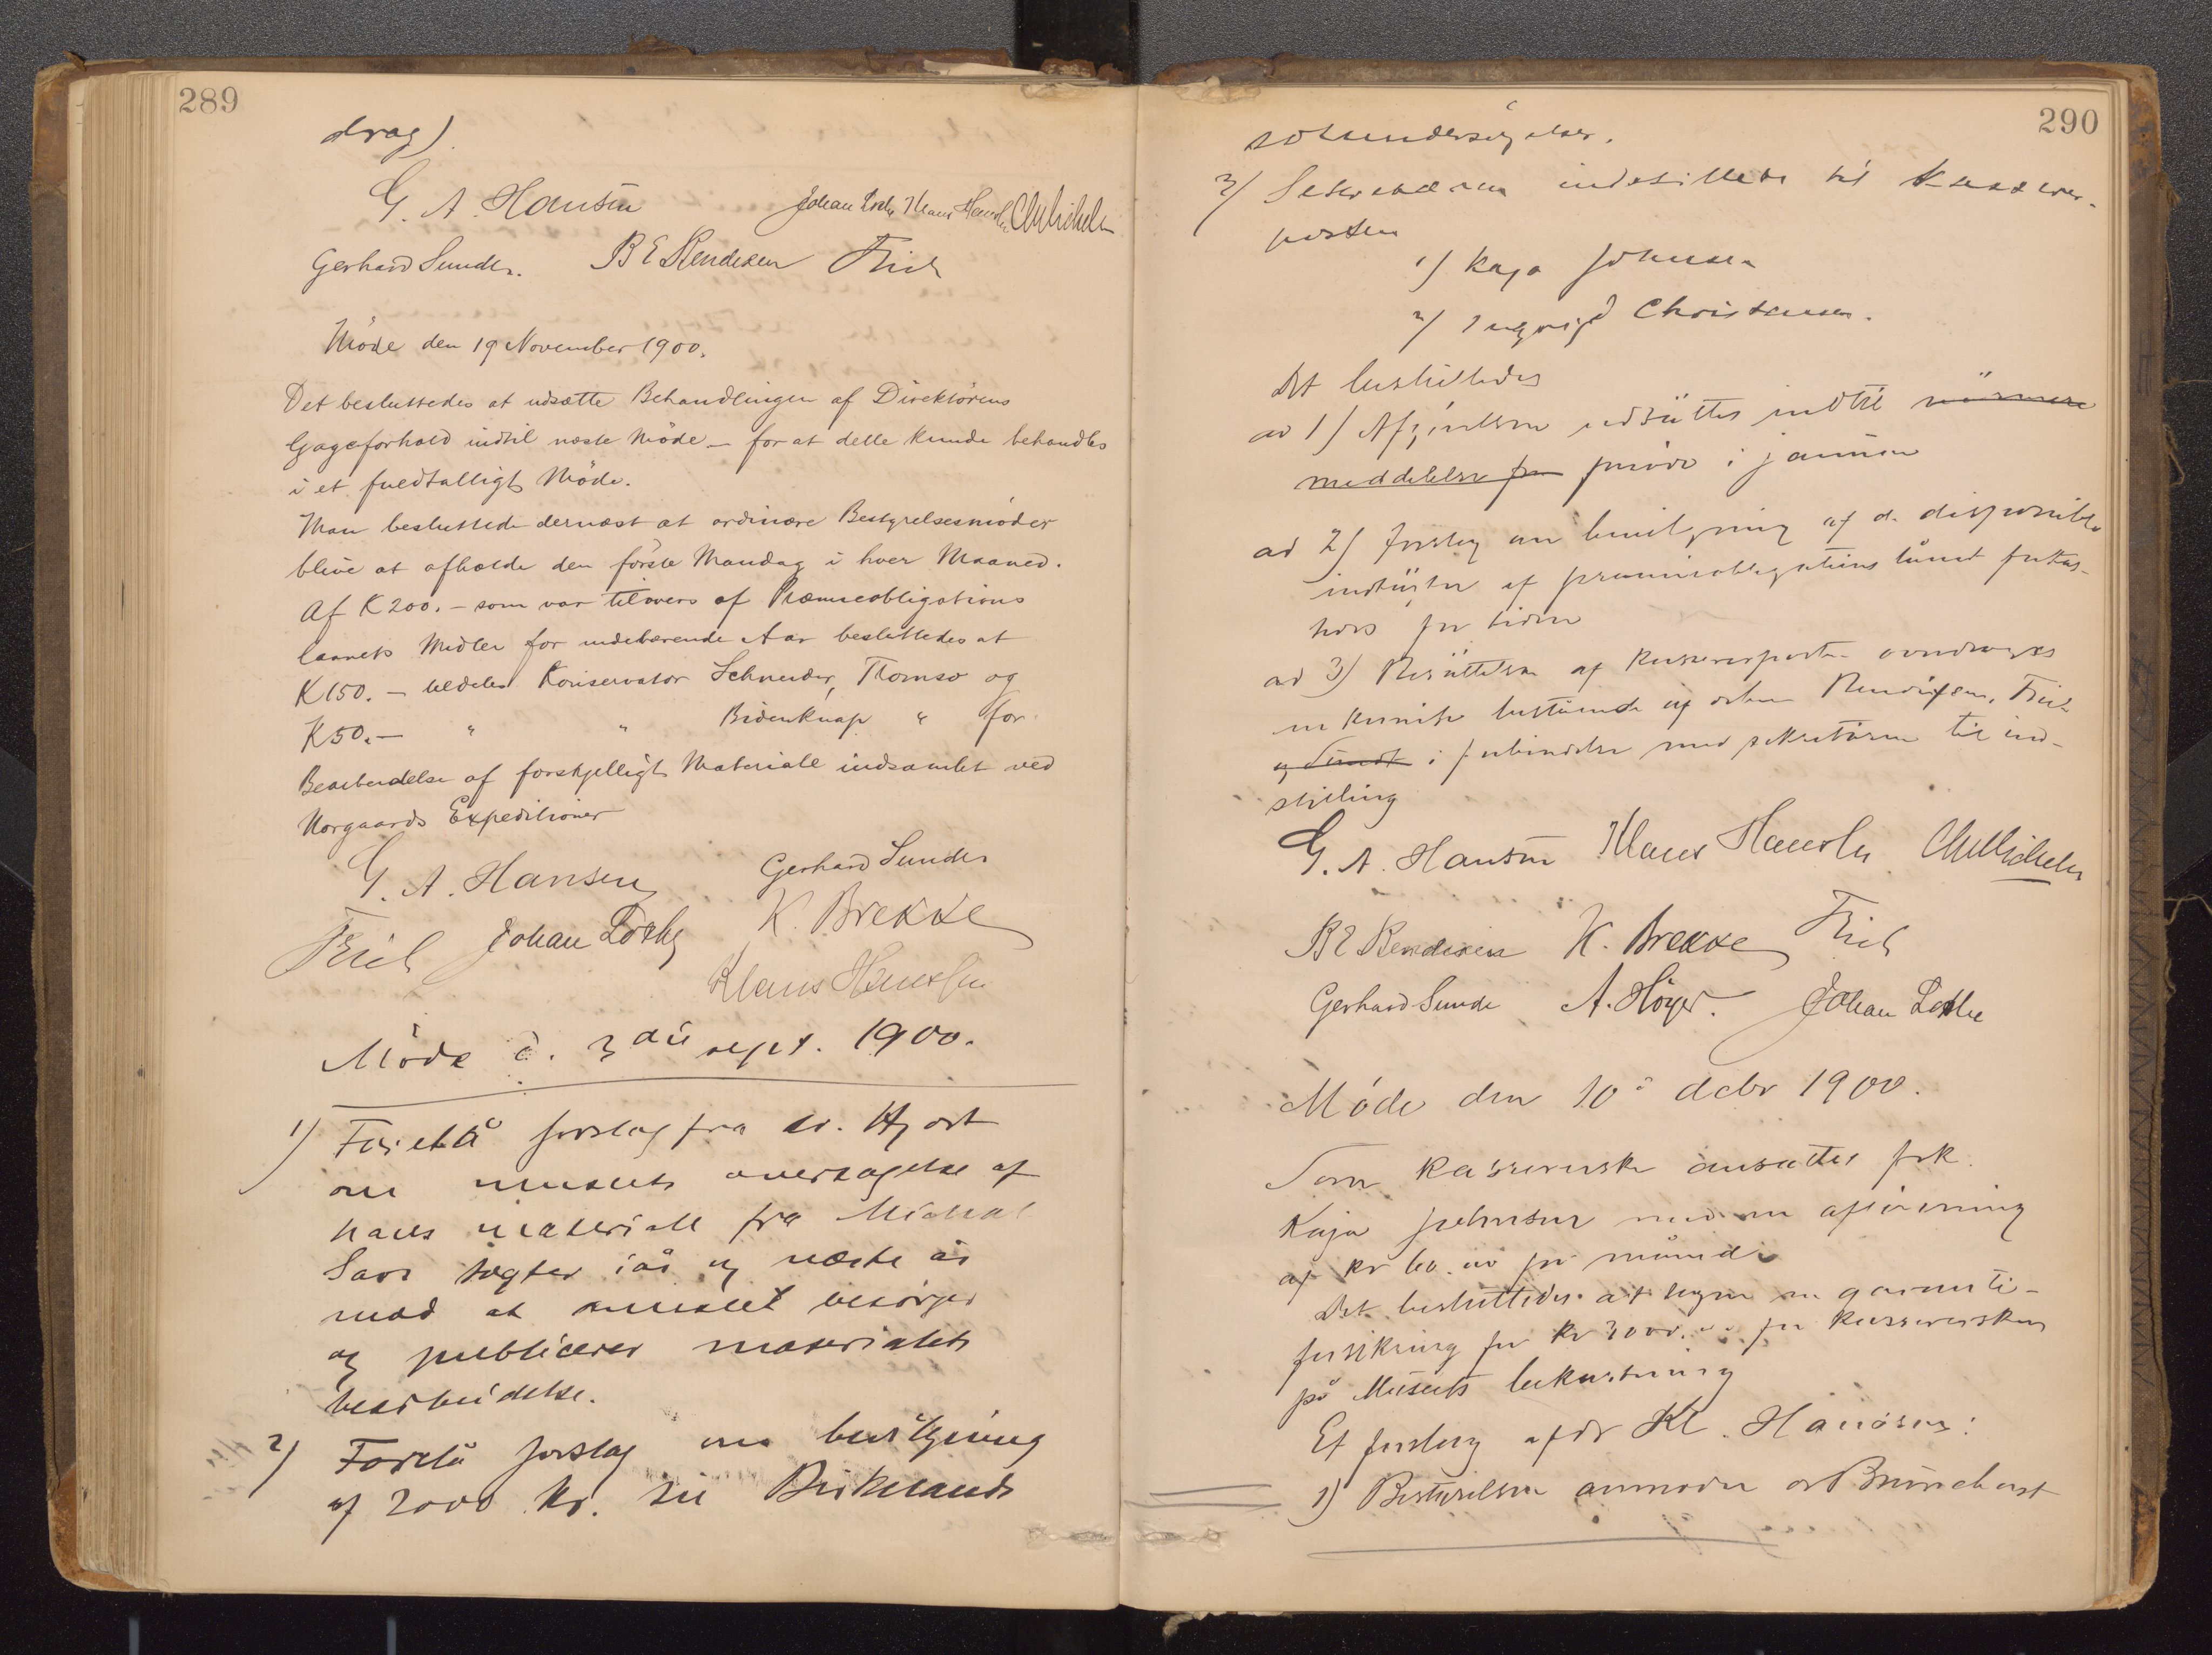 289
drag).
G. A. Hansen Johan Lothe Klaus Hanssen
Gerhard Sunde. B E Bendixen Friele
Möde den 19 November 1900.
Det besluttedes at udsætte Behandlingen af Direktörens
Gageforhold indtil næste Möde – for at dette kunde behandles
i et fuldtalligt Möde.
Man besluttede dernæst at ordinære Bestyrelsesmöder
blive at afholde den förste Mandag i hver Maaned.
Af K 200.– som var tilovers af Præmieobligations
laanets Midler for indeværende Aar besluttedes at
K 150.– tildeles Konservator Schneider, Tromsö og
K 50.– " " Bidenknap " for
Bearbeidelse af forskjelligt Materiale indsamlet ved
Norgaards Expeditioner
G. A. Hansen Gerhard Sunde
Friele Johan Lothe K. Brekke
Klaus Hanssen
Möde d. 3die sept. 1900.
1) Forelå forslag fra dr. Hjort
om museets overtagelse af
hans materiale fra Michael
Sars togter iår og næste år
mod at museet besörger
og publicerer materialets
bearbeidelse.
2) Forelå forslag om bevilgning
af 2000 kr. til Birkelands
290
solundersögelser.
3) Sekretæren indstillede til kasserer-
posten
1) Kaja Johnsen
2) Ingrid Christensen.
Det besluttedes
ad 1) Afgjörelsen udsættes indtil nærmere
meddelelse fra möde i januar
ad 2) Forslag om bevilgning af de disponible
indtægter af præmieobligationslånet
for tiden
ad 3) Besættelsen af kassererposten overdrages
en komite bestående af Bendixen, Friele
og Sunde i forbindelse med sekretæren til ind-
stilling
G. A. Hansen Klaus Hanssen
B E Bendixen K. Brekke Friele
Gerhard Sunde A. Höyer. Johan Lothe
Möde den 10de debr 1900.
Som kassererske ansættes frk.
Kaja Johnsen med en aflönning
af kr 60.00 pr måned.
Det besluttedes at tegne en garanti-
forsikring for kr 3000.00 for kassererskens
på Museets bekostning
Et forslag af dr Kl. Hanssen:
1) Bestyrelsen anmoder dr Brunchorst